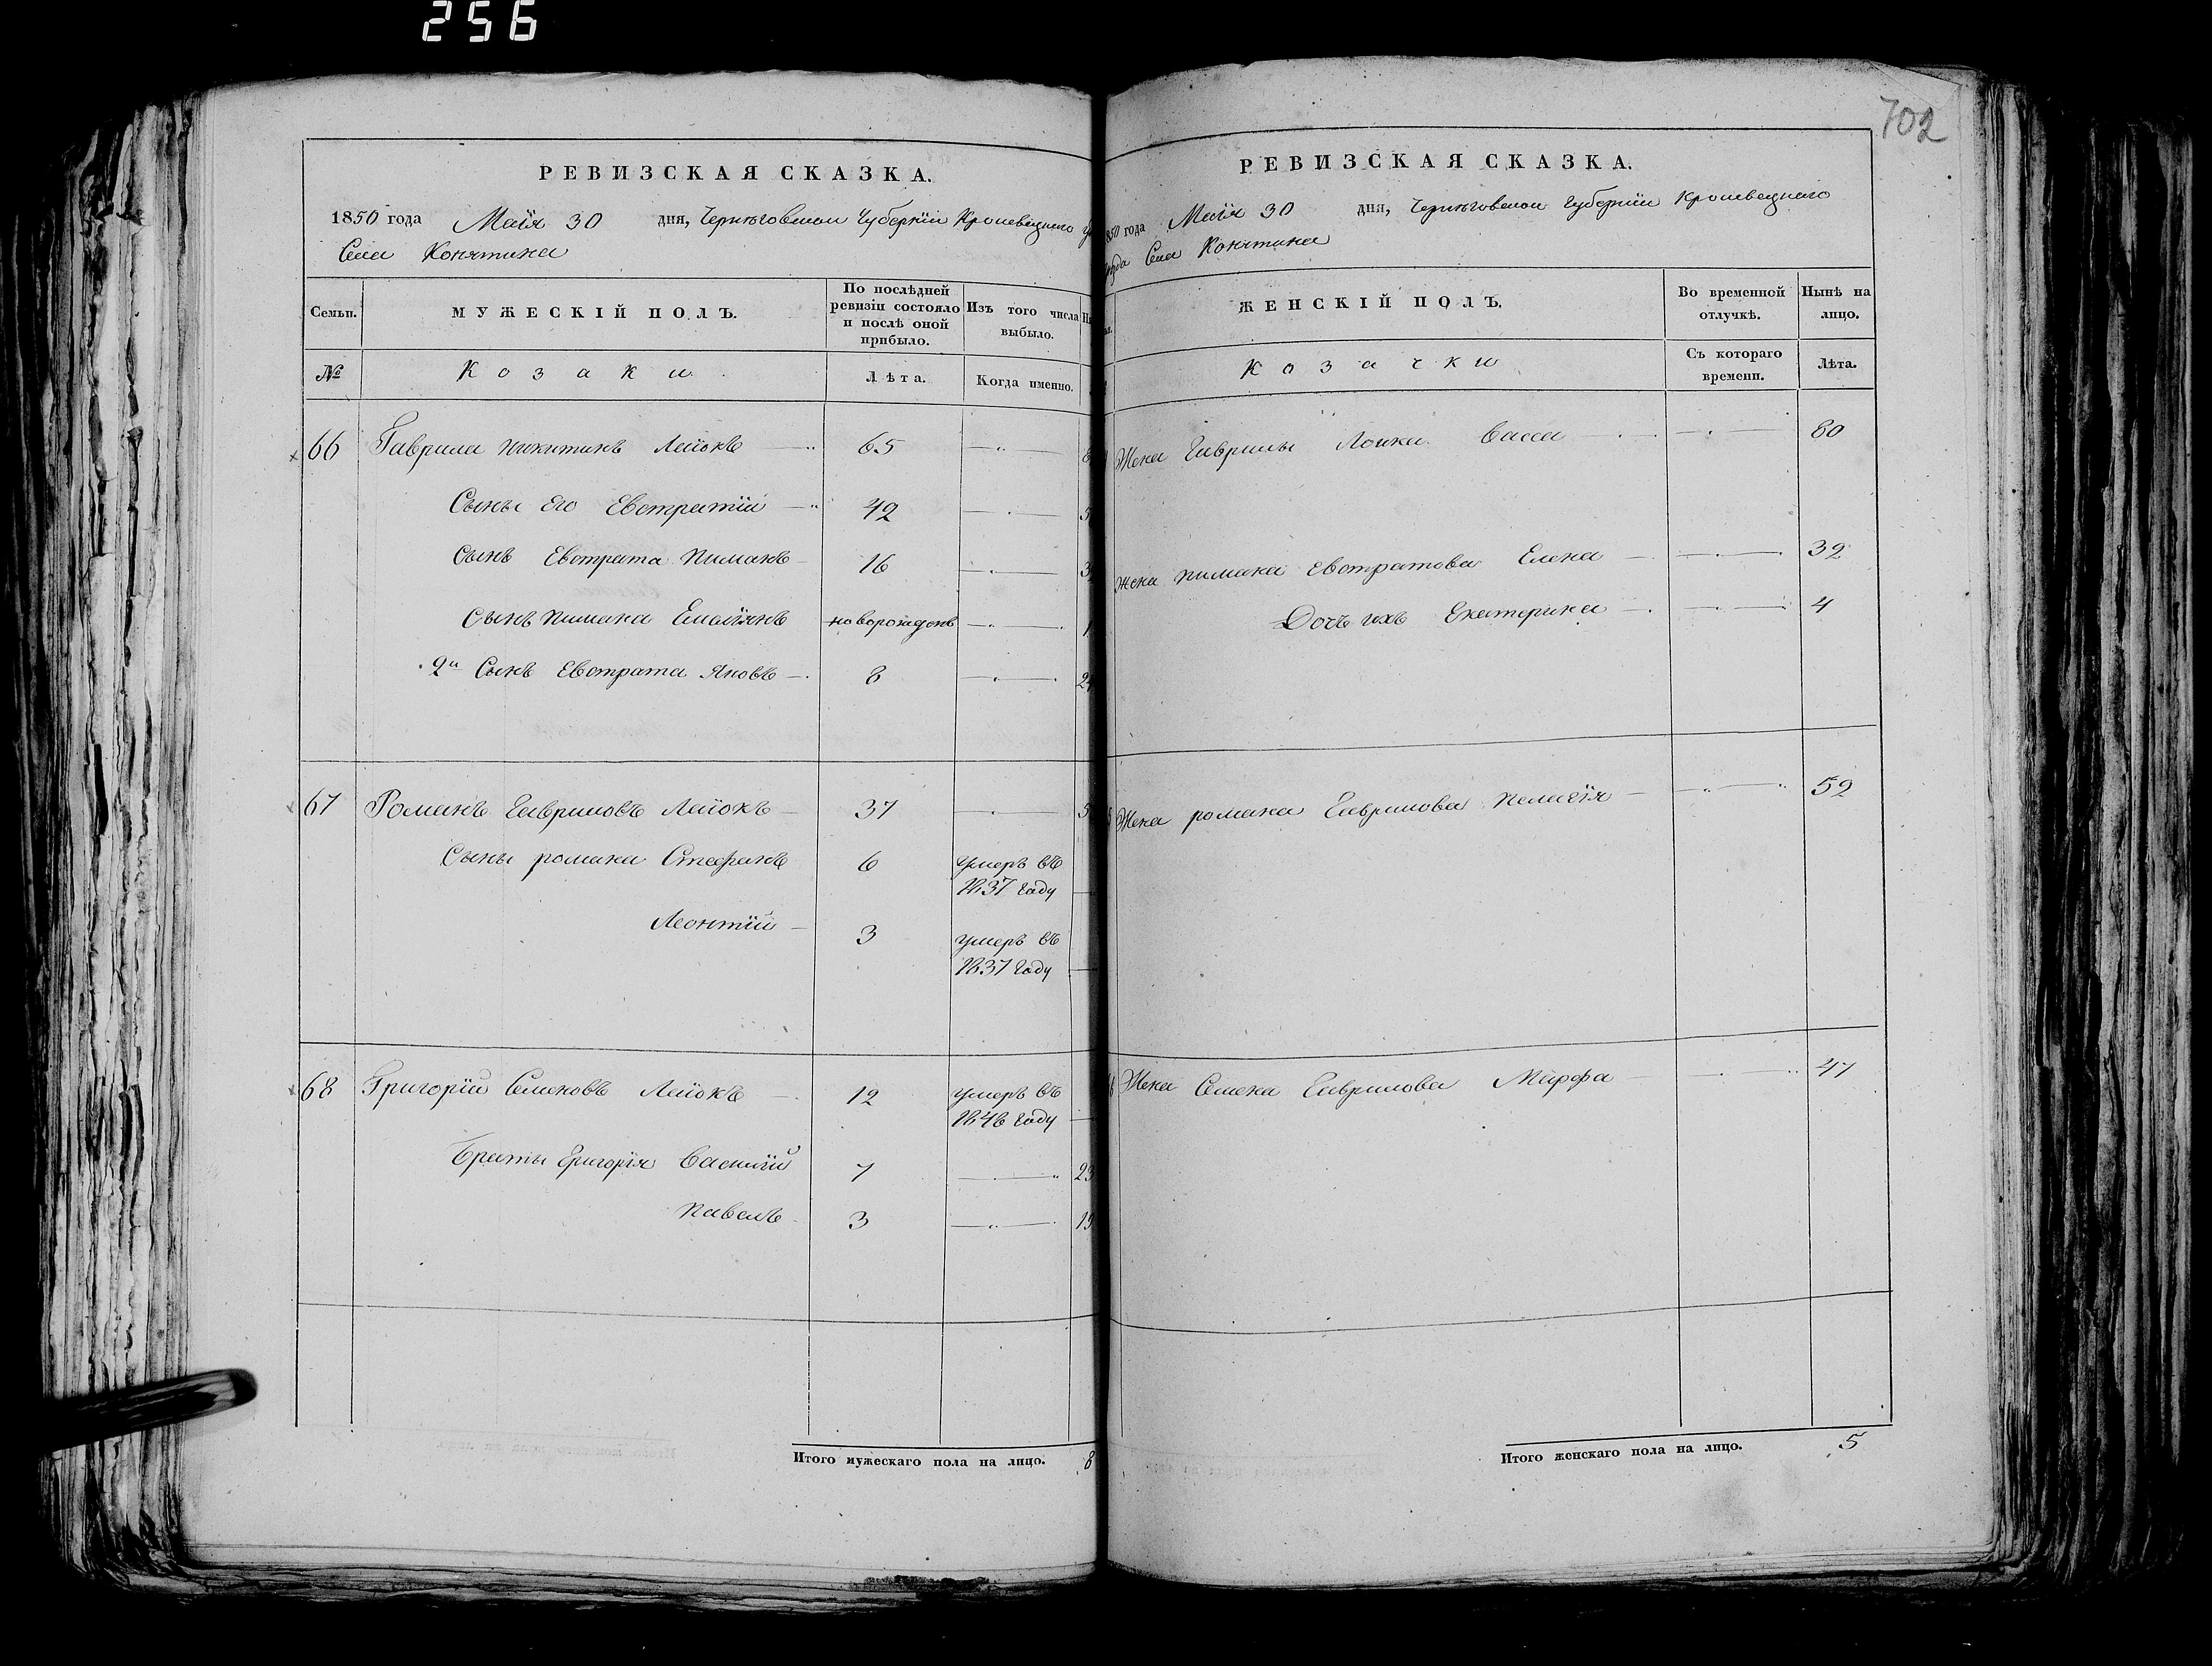 256
702
РЕВИЗСКАЯ СКАЗКА.
1850 года Маія 30 дня, Черниговской Губерніи Кролевецкого
Села Конятина
Семьи.
МУЖЕСКІЙ ПОЛЪ.
По послѣдней ревизіи состояло и послѣ оной прибыло.
Изъ того числа выбыло.
№
Козаки
Лѣта.
Когда именно.
66 Гаврила Никитинъ Лаіокъ 65
Сынъ Его Евстратій 42
Сынъ Евстрата Пиманъ 16
Сынъ Пимана Емаліянъ новорожденъ
2й Сынъ Евстрата Яковъ 8
67 Романъ Гавриловъ Лаіокъ 37
Сыны романа Стефанъ 6 умеръ въ
1837 году
Леонтій 3 умеръ въ
1837 году
68 Григорій Семеновъ Лаіокъ 12 умеръ въ
1848 году
Браты Григорія Василій 7 23
Павелъ 3
Итого мужескаго пола на лицо. 8
РЕВИЗСКАЯ СКАЗКА.
1850 года Маія 30 дня, Черниговской Губерніи Кролевецкого
Села Конятина
ЖЕНСКІЙ ПОЛЪ.
Во временной отлучкѣ.
Нынѣ на лицо.
Козачки
Съ котораго времени.
Лѣта.
Жена Гаврилы Васса
Жена Пимана Евстратова Елена 32
Дочъ ихъ Екатерина 4
Жена романа Гаврилова Пелагія 52
Жена Семена Гаврилова Марфа 47
Итого женскаго пола на лицо. 5